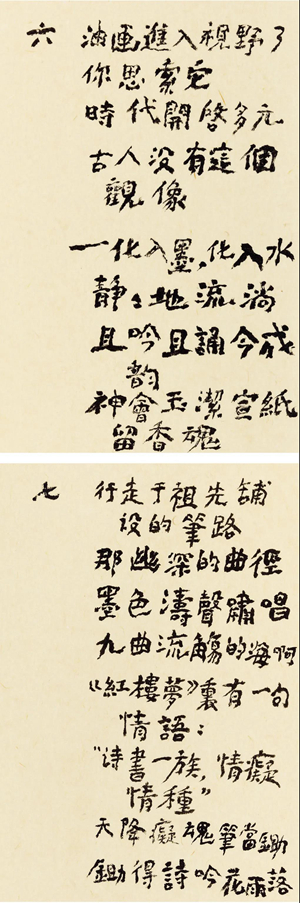 六
油画進入視野了
你思索它
時代開啓多元
古人没有這個
觀像
一化入墨,化入水
靜靜地流淌
且吟且誦今成
韵
神會玉潔宣紙
留香魂
七
行走于祖先鋪
設的筆路
那幽深的曲徑
墨色濤聲嘯唱
九曲流觴的海啊
《紅樓夢》裏有一句
情語:
“詩書一族,情癡
情種”
天降癡魂筆當鋤
鋤得詩吟花雨落